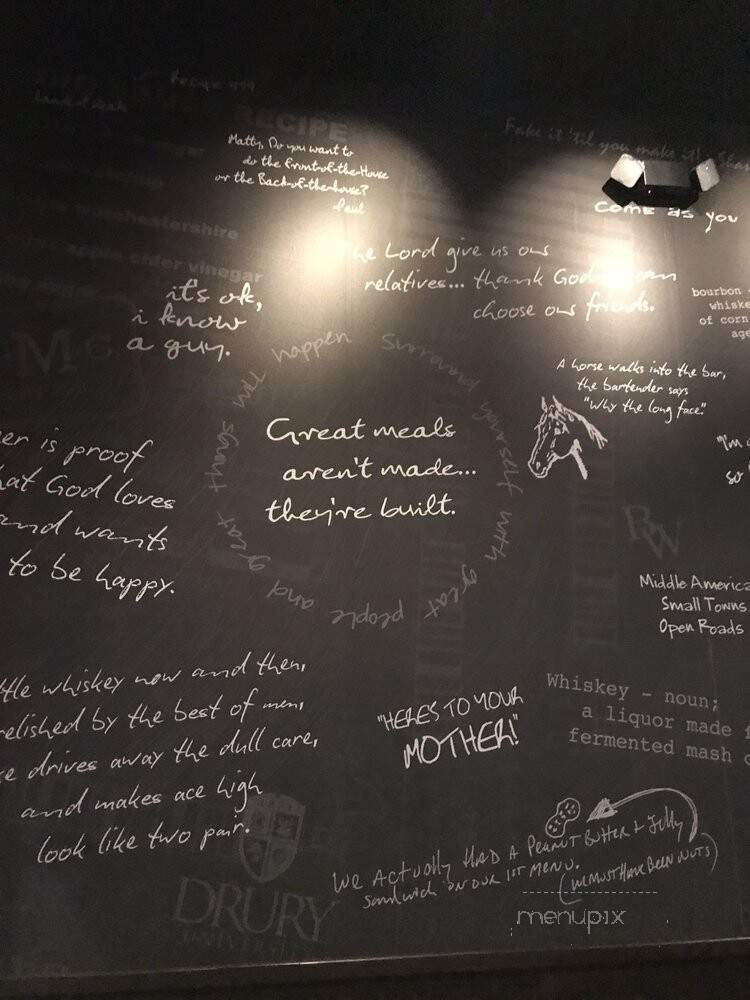 RECIPE
Matty, Do you want to
do the front-of-the-House
or the Back-of-the-house?
Paul
Fake it 'til you make it!
come as you
cider vinegar
Lord give us our
relatives... thank God
choose our friends.
it's ok,
i know
a guy.
bourbon -
whiske
of corn
age
A horse walks into the bar,
the bartender says
"Why the long face."
Surround yourself with great people and great things will happen
Great meals
aren't made...
they're built.
er is proof
hat God loves
and wants
to be happy.
"I'm
so
RW
Middle America
Small Towns
Open Roads
ttle whiskey now and then,
relished by the best of men,
e drives away the dull care,
and makes ace high
look like two pair.
"HERES TO YOUR
MOTHER!"
Whiskey - noun;
a liquor made f
fermented mash o
We Actually Had A Peanut Butter & Jelly
Sandwich on our 1st menu.
(We must have been nuts)
DRURY
UNIVERSITY
menupix